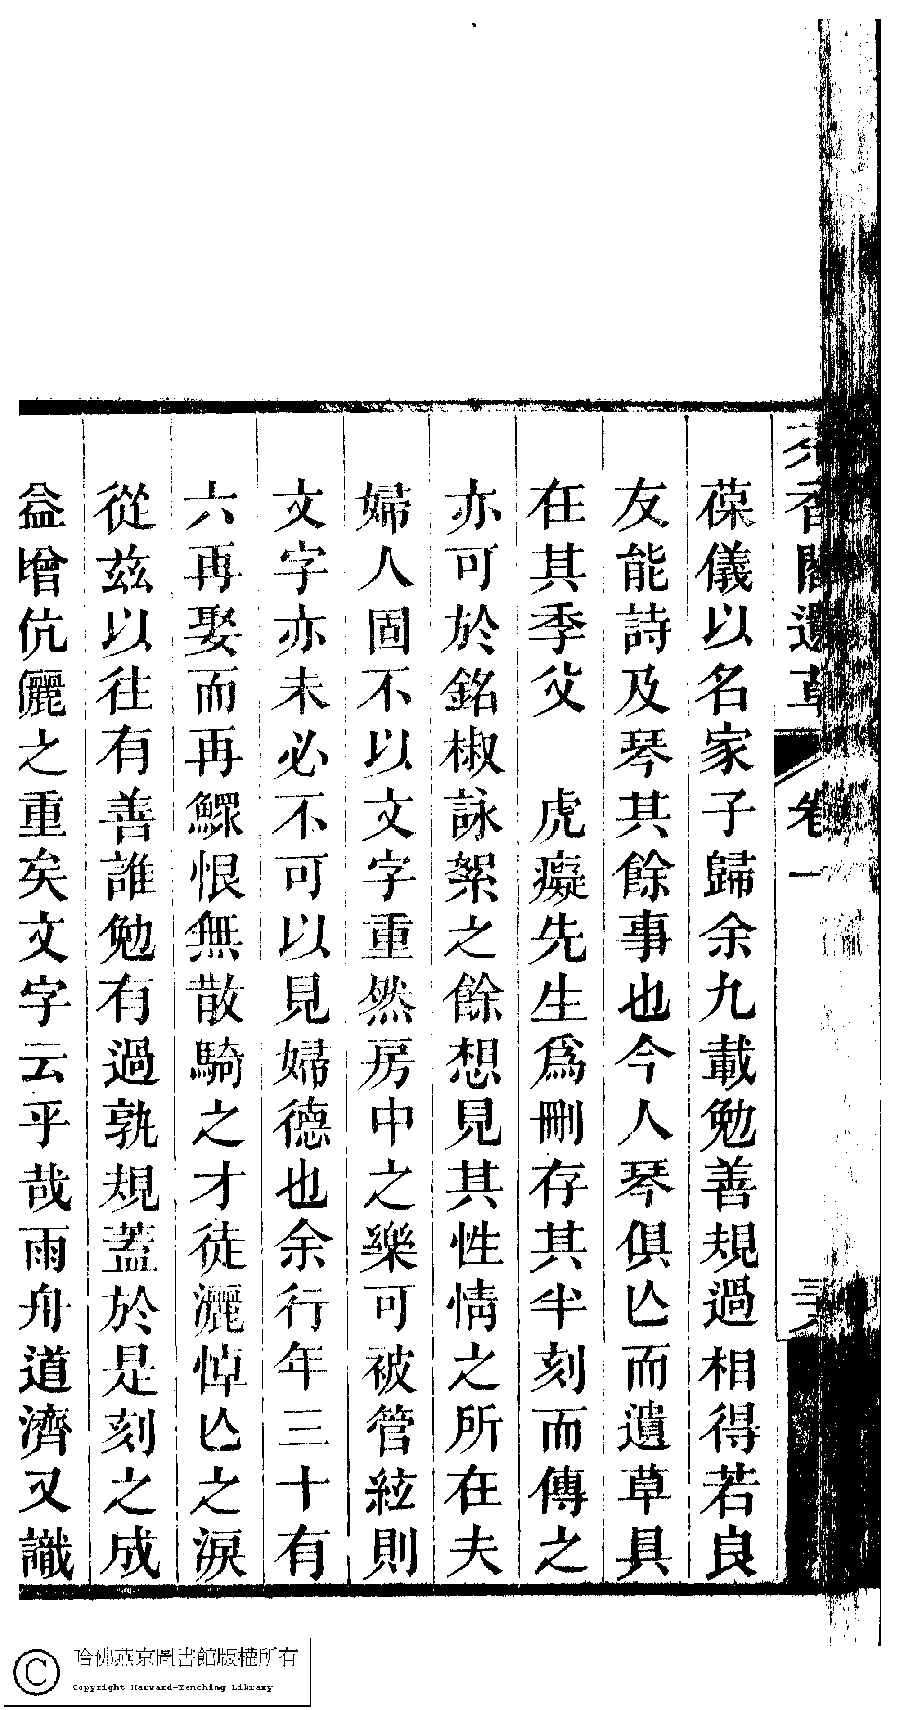 香閣遺草 卷一
葆儀以名家子歸余九載勉善規過相得若良
友能詩及琴其餘事也今人琴俱亾而遺草具
在其季父 虎癡先生爲刪存其半刻而傳之
亦可於銘椒詠絮之餘想見其性情之所在夫
婦人固不以文字重然房中之樂可被管絃則
文字亦未必不可以見婦德也余行年三十有
六再娶而再鰥恨無散騎之才徒灑悼亾之淚
從兹以往有善誰勉有過孰規蓋於是刻之成
益增伉儷之重矣文字云乎哉雨舟道濟又識
哈佛燕京圖書館版權所有
Copyright Harvard-Yenching Library